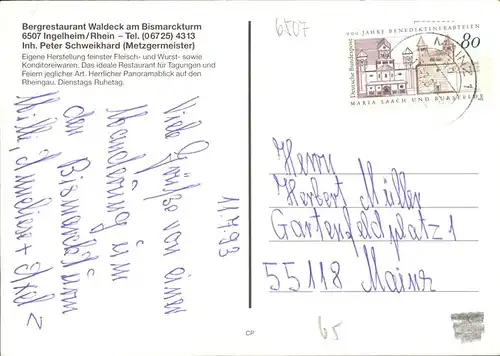 Bergrestaurant Waldeck am Bismarckturm
6507 Ingelheim/Rhein – Tel. (06725) 4313
Inh. Peter Schweikhard (Metzgermeister)
Eigene Herstellung feinster Fleisch- und Wurst- sowie
Konditoreiwaren. Das ideale Restaurant für Tagungen und
Feiern jeglicher Art. Herrlicher Panoramablick auf den
Rheingau. Dienstags Ruhetag.
11.7.93
Viele Grüße von einer
Wanderung im
den Bismarckturm
6507
900 JAHRE BENEDIKTINERABTEIEN
Deutsche Bundespost
80
MARIA LAACH UND BURSFELDE
Herrn
Herbert Müller
Gartenfeldplatz 1
55118 Mainz
65
CP